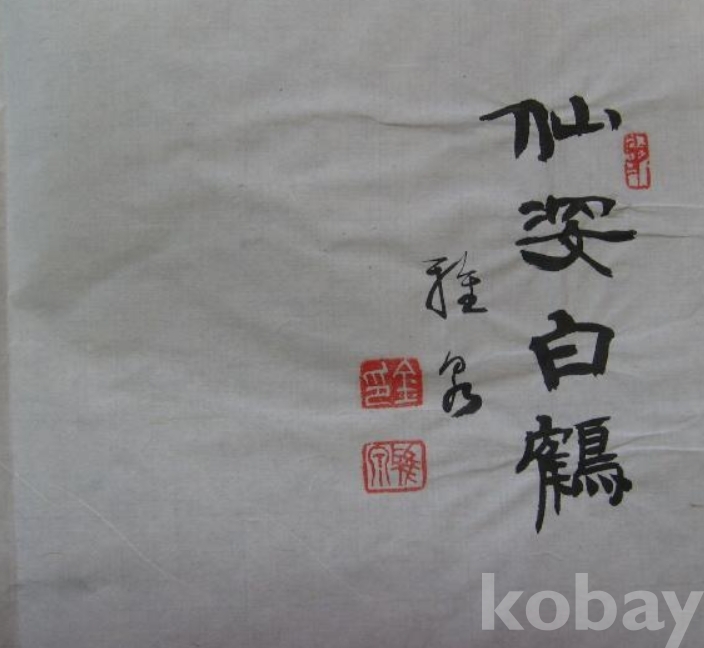 仙姿白鶴
雅泉
金印
kobay